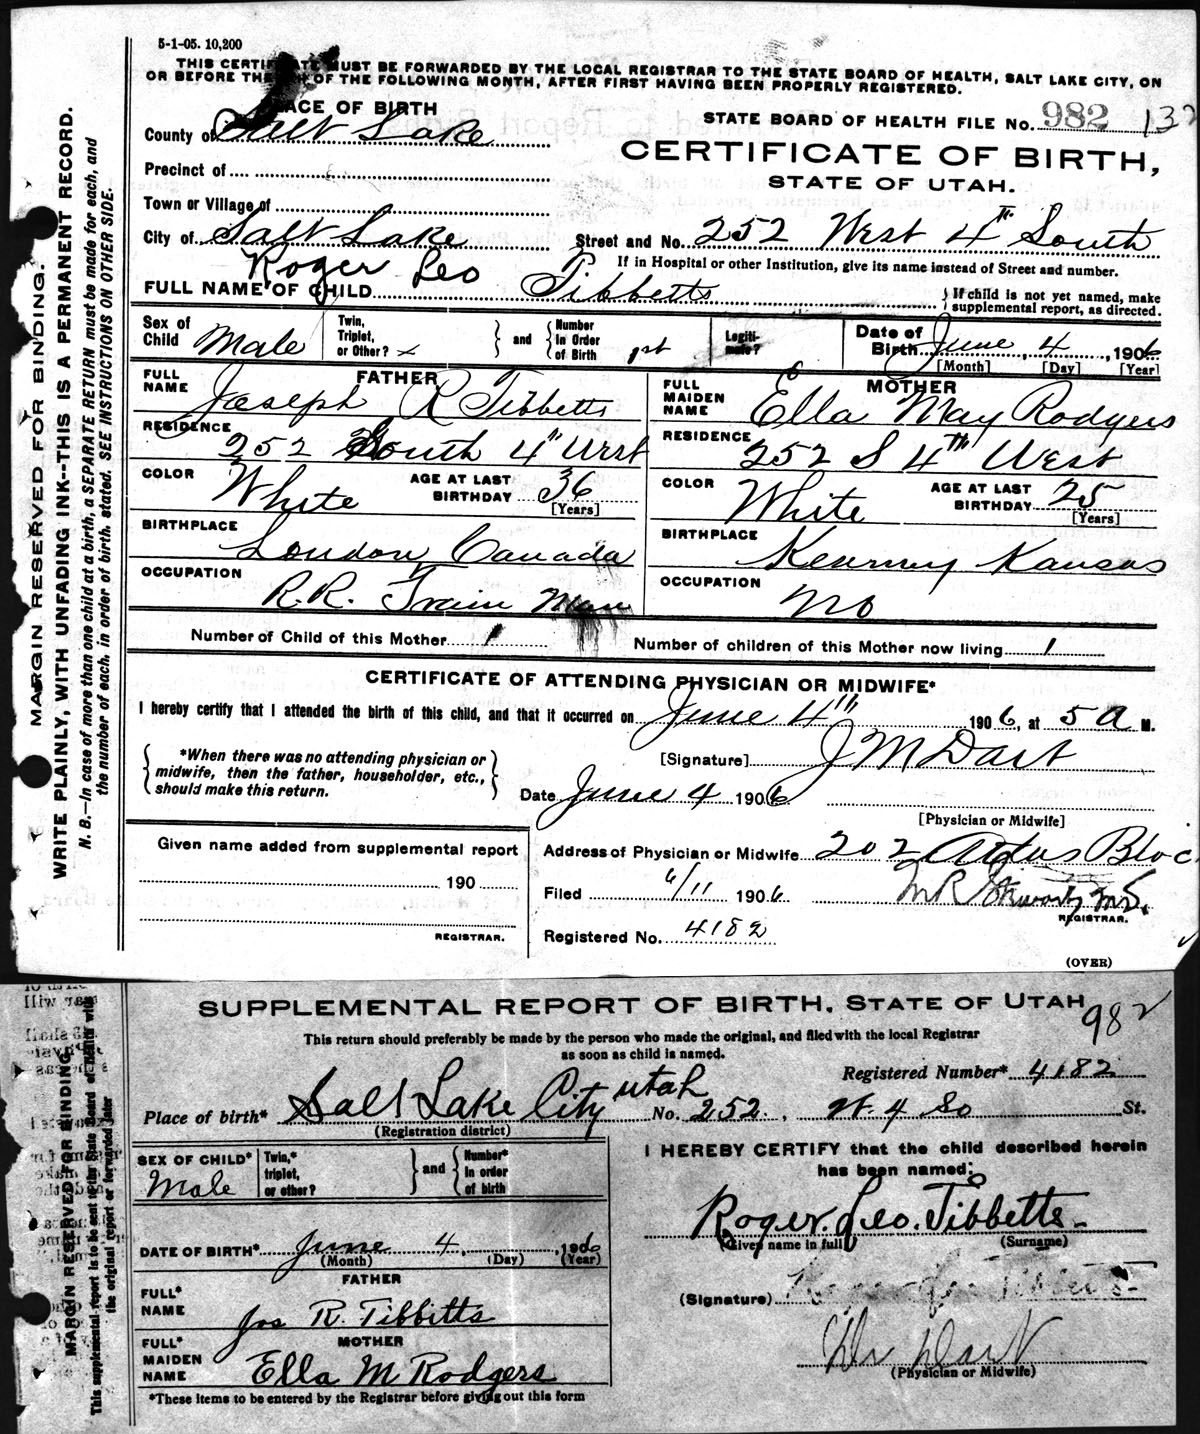 5-1-05. 10,200
THIS CERTIFICATE MUST BE FORWARDED BY THE LOCAL REGISTRAR TO THE STATE BOARD OF HEALTH, SALT LAKE CITY, ON
OR BEFORE THE OF THE FOLLOWING MONTH, AFTER FIRST HAVING BEEN PROPERLY REGISTERED.
PLACE OF BIRTH
STATE BOARD OF HEALTH FILE No. 982 132
County of Salt Lake
CERTIFICATE OF BIRTH,
Precinct of
STATE OF UTAH.
Town or Village of
City of Salt Lake Street and No. 252 West 4th South
If in Hospital or other Institution, give its name instead of Street and number.
FULL NAME OF CHILD Roger Leo Tibbetts
{If child is not yet named, make
supplemental report, as directed.
Sex of Child Male
Twin, Triplet, or Other? x } and { Number In Order of Birth 1st
Legiti-mate?
Date of Birth June, 4, 1906
[Month] [Day] [Year]
FATHER
FULL NAME Joseph R Tibbetts
RESIDENCE 252 South 4th West
COLOR White AGE AT LAST BIRTHDAY 36 [Years]
BIRTHPLACE London, Canada
OCCUPATION R.R. Train Man
MOTHER
FULL MAIDEN NAME Ella May Rodgers
RESIDENCE 252 S 4TH West
COLOR White AGE AT LAST BIRTHDAY 25 [Years]
BIRTHPLACE Kearney Kansas
OCCUPATION No
Number of Child of this Mother 1 Number of children of this Mother now living 1
CERTIFICATE OF ATTENDING PHYSICIAN OR MIDWIFE*
I hereby certify that I attended the birth of this child, and that it occurred on June 4th 1906, at 5 A M.
{*When there was no attending physician or
midwife, then the father, householder, etc.,
should make this return.}
[Signature] J M Dart
Date June 4 1906
[Physician or Midwife]
Given name added from supplemental report
190
REGISTRAR.
Address of Physician or Midwife 202 Bloc
Filed 6/11 1906
REGISTRAR.
Registered No. 4182
(OVER)
MARGIN RESERVED FOR BINDING.
WRITE PLAINLY, WITH UNFADING INK--THIS IS A PERMANENT RECORD.
N. B.—In case of more than one child at a birth, a SEPARATE RETURN must be made for each, and
the number of each, in order of birth, stated. SEE INSTRUCTIONS ON OTHER SIDE.
SUPPLEMENTAL REPORT OF BIRTH, STATE OF UTAH
982
This return should preferably be made by the person who made the original, and filed with the local Registrar
as soon as child is named.
Registered Number* 4182
Place of birth* Salt Lake City Utah No. 252. W. 4 So St.
(Registration district)
SEX OF CHILD* Male
Twin,* triplet, or other? } and { Number* in order of birth
DATE OF BIRTH* June 4, 1906
(Month) (Day) (Year)
FATHER
FULL* NAME Jos R. Tibbitts
MOTHER
FULL* MAIDEN NAME Ella M Rodgers
*These items to be entered by the Registrar before giving out this form
I HEREBY CERTIFY that the child described herein
has been named:
Roger. Leo. Tibbetts-
(Given name in full) (Surname)
(Signature) Roger Leo Tibbetts
Dr Dart
(Physician or Midwife)
MARGIN RESERVED FOR BINDING.
This supplemental report is to be sent to the State Board of Health with
the original report or forwarded later